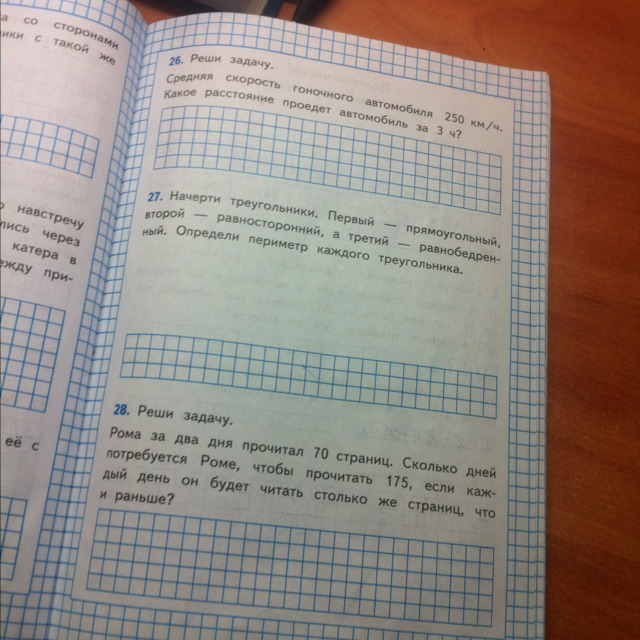 со сторонами
с такой же
навстречу
через
катера в
при-
её с
26. Реши задачу.
Средняя скорость гоночного автомобиля 250 км/ч.
Какое расстояние проедет автомобиль за 3 ч?
27. Начерти треугольники. Первый — прямоугольный,
второй — равносторонний, а третий — равнобедрен-
ный. Определи периметр каждого треугольника.
28. Реши задачу.
Рома за два дня прочитал 70 страниц. Сколько дней
потребуется Роме, чтобы прочитать 175, если каж-
дый день он будет читать столько же страниц, что
и раньше?